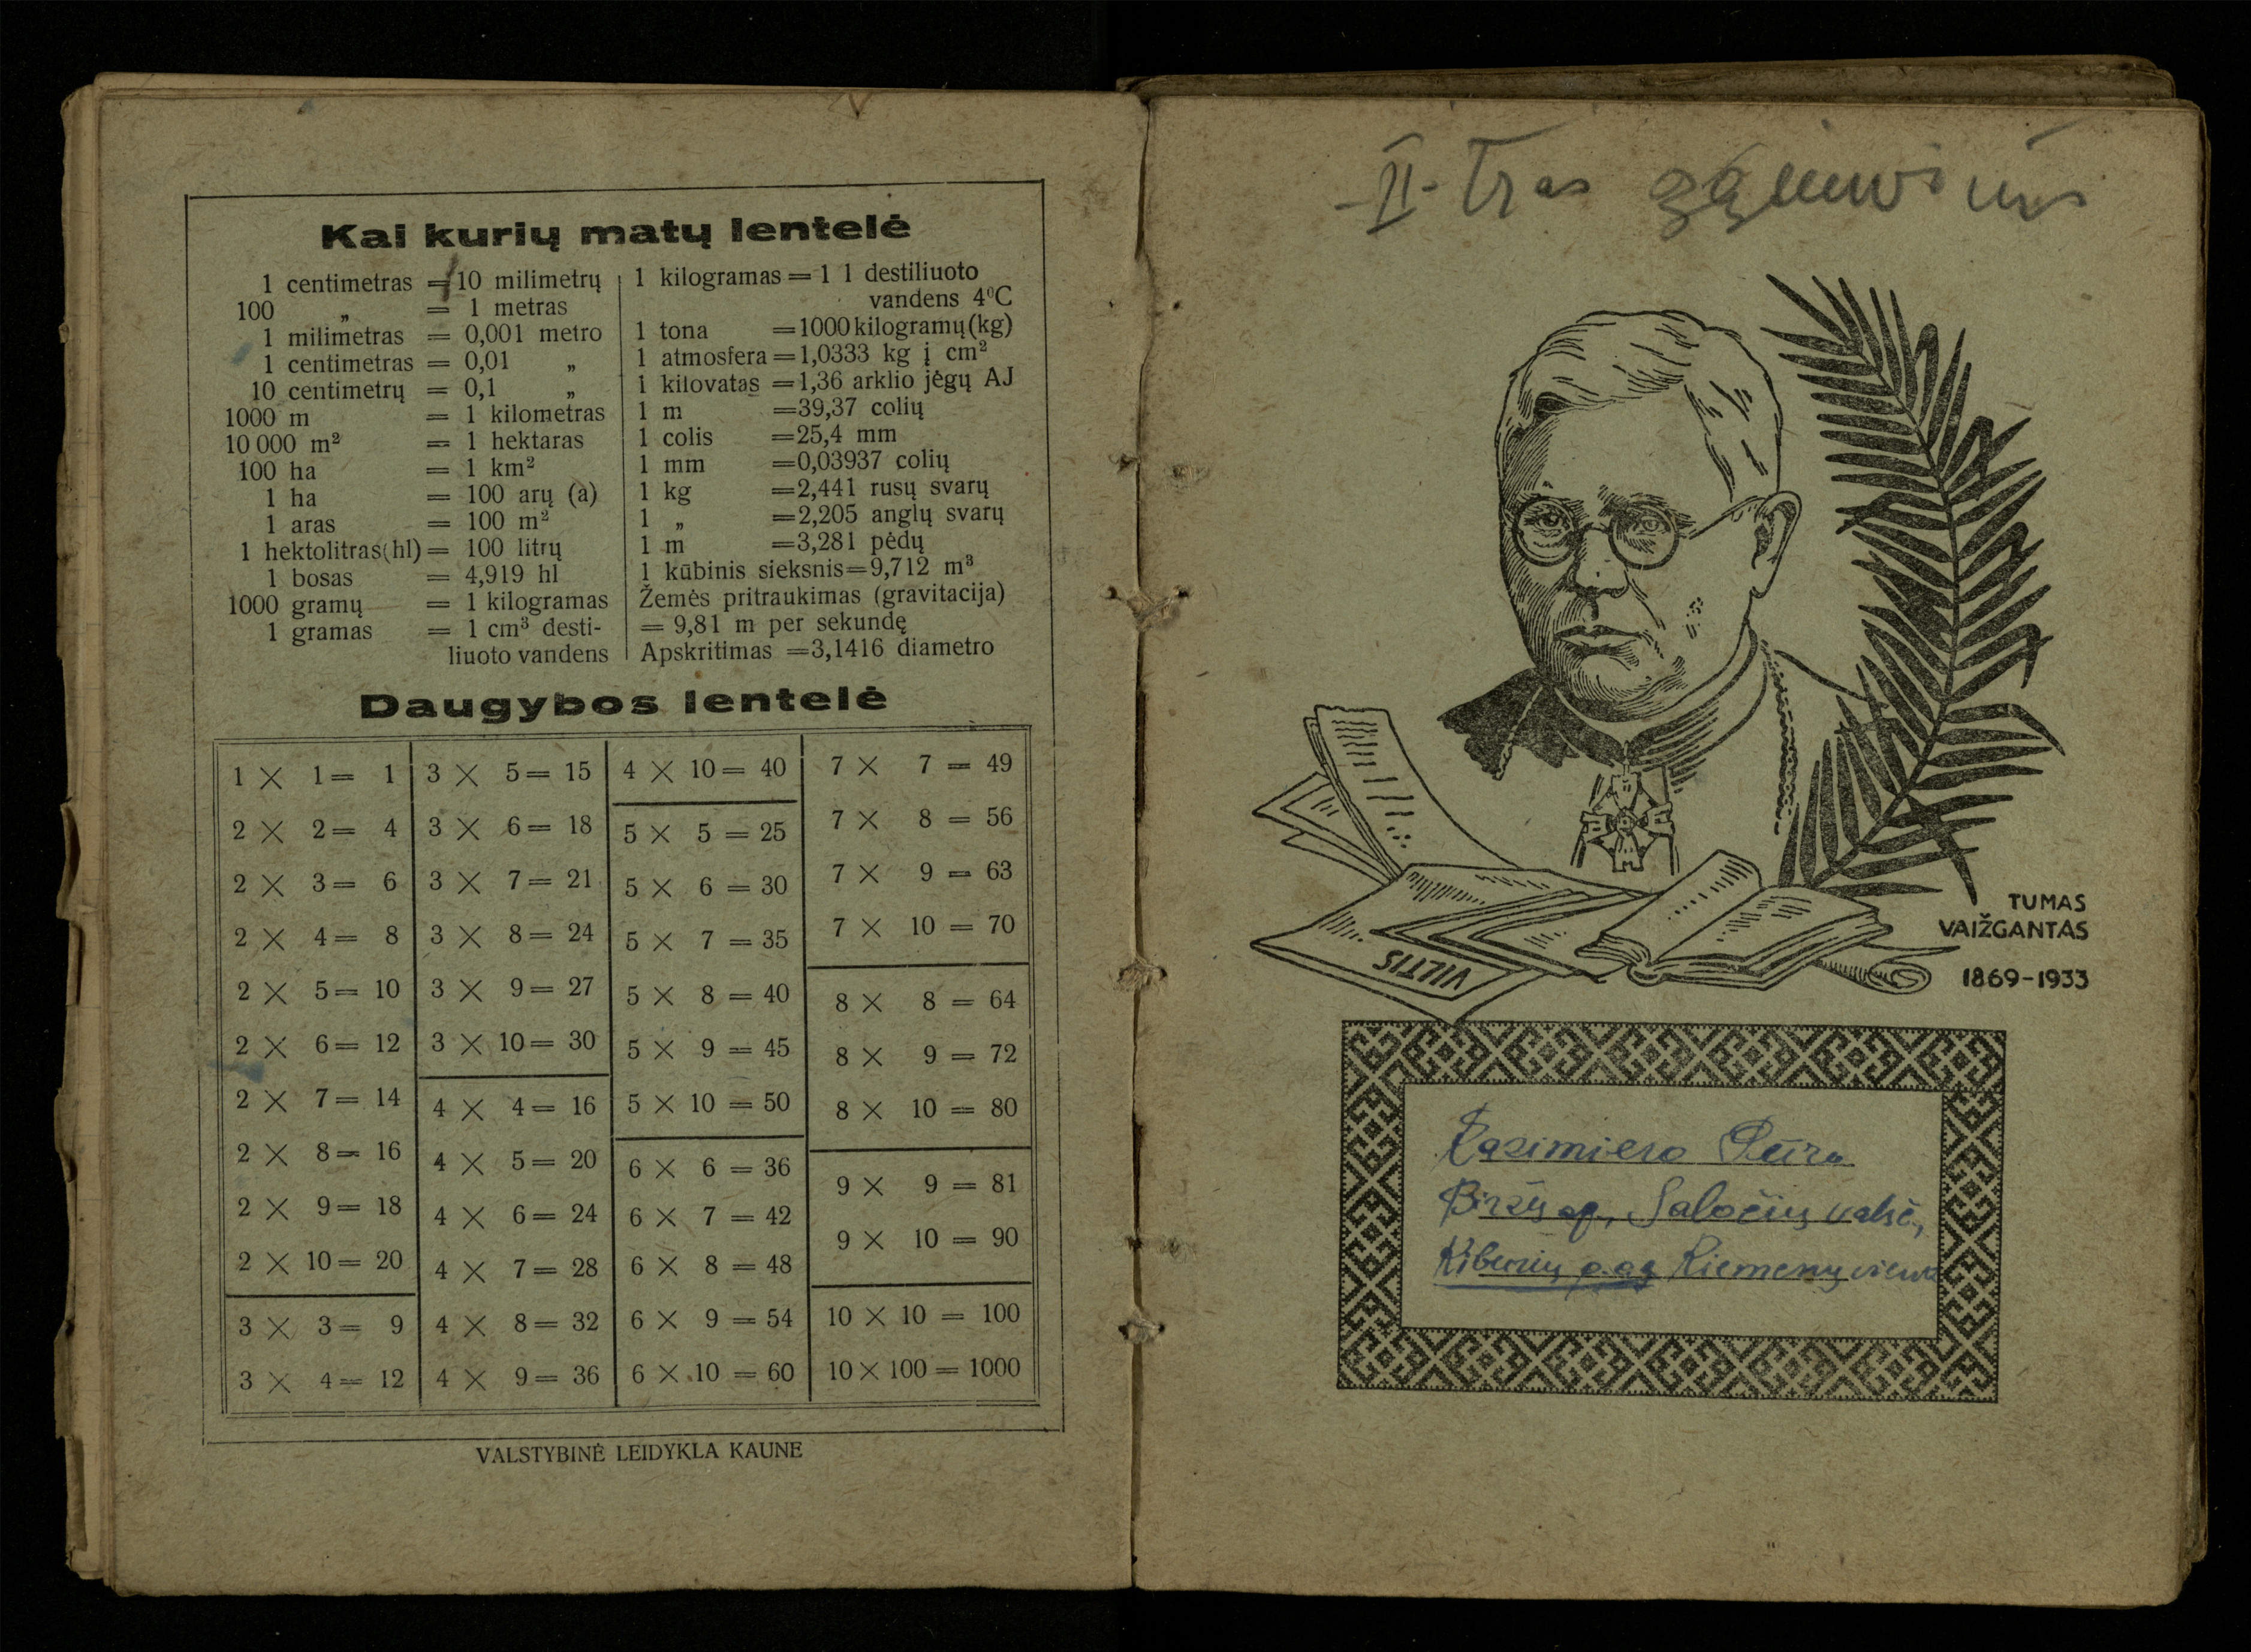 Kai kurių matų lentelė
1 centimetras = 10 milimetrų
100 „ = 1 metras
1 milimetras = 0,001 metro
1 centimetras = 0,01 „
10 centimetrų = 0,1 „
1000 m = 1 kilometras
10 000 m² = 1 hektaras
100 ha = 1 km²
1 ha = 100 arų (a)
1 aras = 100 m²
1 hektolitras(hl) = 100 litrų
1 bosas = 4,919 hl
1000 gramų = 1 kilogramas
1 gramas = 1 cm³ desti-
liuoto vandens
1 kilogramas = 1 l destiliuoto
vandens 4⁰C
1 tona =1000 kilogramų(kg)
1 atmosfera = 1,0333 kg į cm²
1 kilovatas =1,36 arklio jėgų AJ
1 m =39,37 colių
1 colis =25,4 mm
1 mm =0,03937 colių
1 kg =2,441 rusų svarų
1 „ =2,205 anglų svarų
1 m =3,281 pėdų
1 kūbinis sieksnis=9,712 m³
Žemės pritraukimas (gravitacija)
= 9,81 m per sekundę
Apskritimas =3,1416 diametro
Daugybos lentelė
1 × 1 = 1
2 × 2 = 4
2 × 3 = 6
2 × 4 = 8
2 × 5 = 10
2 × 6 = 12
2 × 7 = 14
2 × 8 = 16
2 × 9 = 18
2 × 10 = 20
3 × 3 = 9
3 × 4 = 12
3 × 5 = 15
3 × 6 = 18
3 × 7 = 21
3 × 8 = 24
3 × 9 = 27
3 × 10 = 30
4 × 4 = 16
4 × 5 = 20
4 × 6 = 24
4 × 7 = 28
4 × 8 = 32
4 × 9 = 36
4 × 10 = 40
5 × 5 = 25
5 × 6 = 30
5 × 7 = 35
5 × 8 = 40
5 × 9 = 45
5 × 10 = 50
6 × 6 = 36
6 × 7 = 42
6 × 8 = 48
6 × 9 = 54
6 × 10 = 60
7 × 7 = 49
7 × 8 = 56
7 × 9 = 63
7 × 10 = 70
8 × 8 = 64
8 × 9 = 72
8 × 10 = 80
9 × 9 = 81
9 × 10 = 90
10 × 10 = 100
10 × 100 = 1000
VALSTYBINĖ LEIDYKLA KAUNE
-II-tras
VILTIS
TUMAS
VAIŽGANTAS
1869-1933
Kazimiero
Biržų ap., Saločių valsč.,
Kiburių Riemenų